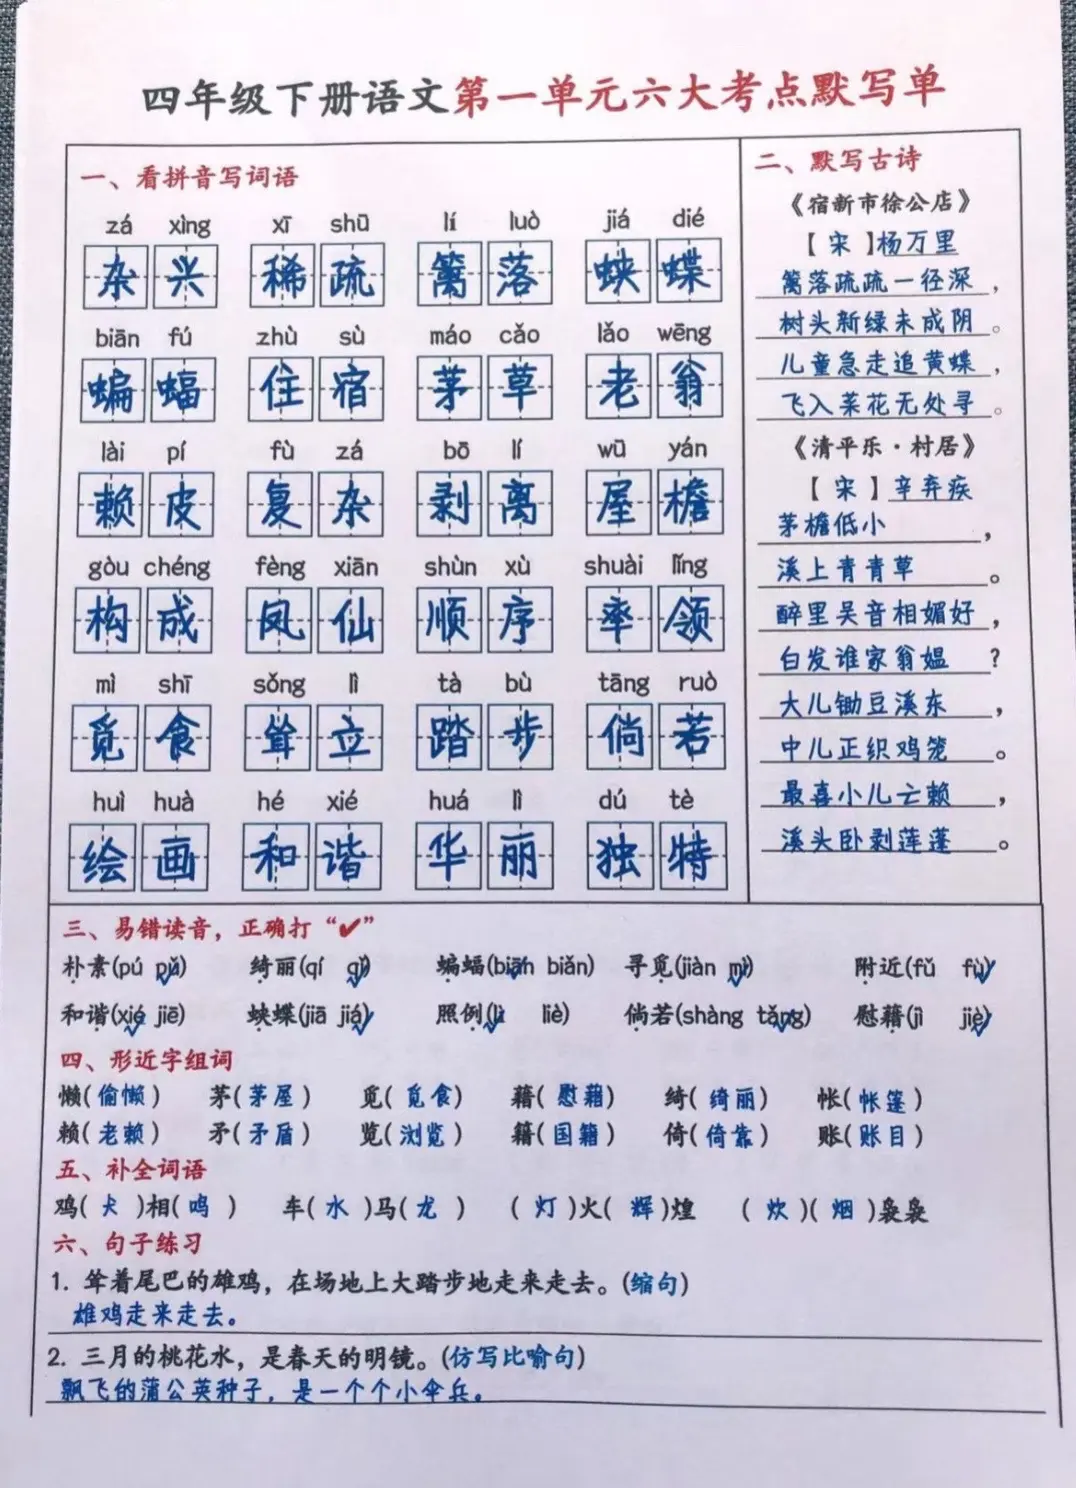 四年级下册语文第一单元六大考点默写单
一、看拼音写词语
zá xìng xī shū lí luò jiá dié
杂兴 稀疏 篱落 蛱蝶
biān fú zhù sù máo cǎo lǎo wēng
蝙蝠 住宿 茅草 老翁
lài pí fù zá bō lí wū yán
赖皮 复杂 剥离 屋檐
gòu chéng fèng xiān shùn xù shuài lǐng
构成 凤仙 顺序 率领
mì shī sǒng lì tà bù tǎng ruò
觅食 耸立 踏步 倘若
huì huà hé xié huá lì dú tè
绘画 和谐 华丽 独特
二、默写古诗
《宿新市徐公店》
【宋】杨万里
篱落疏疏一径深，
树头新绿未成阴。
儿童急走追黄蝶，
飞入菜花无处寻。
《清平乐·村居》
【宋】辛弃疾
茅檐低小，
溪上青青草。
醉里吴音相媚好，
白发谁家翁媪？
大儿锄豆溪东，
中儿正织鸡笼。
最喜小儿亡赖，
溪头卧剥莲蓬。
三、易错读音，正确打“✔”
朴素(pú pǔ✓) 绮丽(qí qǐ✓) 蝙蝠(biān✓ biǎn) 寻觅(jiàn mì✓) 附近(fǔ fù✓)
和谐(xié✓ jiē) 蛱蝶(jiā jiá✓) 照例(lì✓ liè) 倘若(shàng tǎng✓) 慰藉(jì jiè✓)
四、形近字组词
懒(偷懒) 茅(茅屋) 觅(觅食) 藉(慰藉) 绮(绮丽) 帐(帐篷)
赖(老赖) 矛(矛盾) 览(浏览) 籍(国籍) 倚(倚靠) 账(账目)
五、补全词语
鸡(犬)相(鸣) 车(水)马(龙) (灯)火(辉)煌 (炊)(烟)袅袅
六、句子练习
1. 耸着尾巴的雄鸡，在场地上大踏步地走来走去。(缩句)
雄鸡走来走去。
2. 三月的桃花水，是春天的明镜。(仿写比喻句)
飘飞的蒲公英种子，是一个个小伞兵。